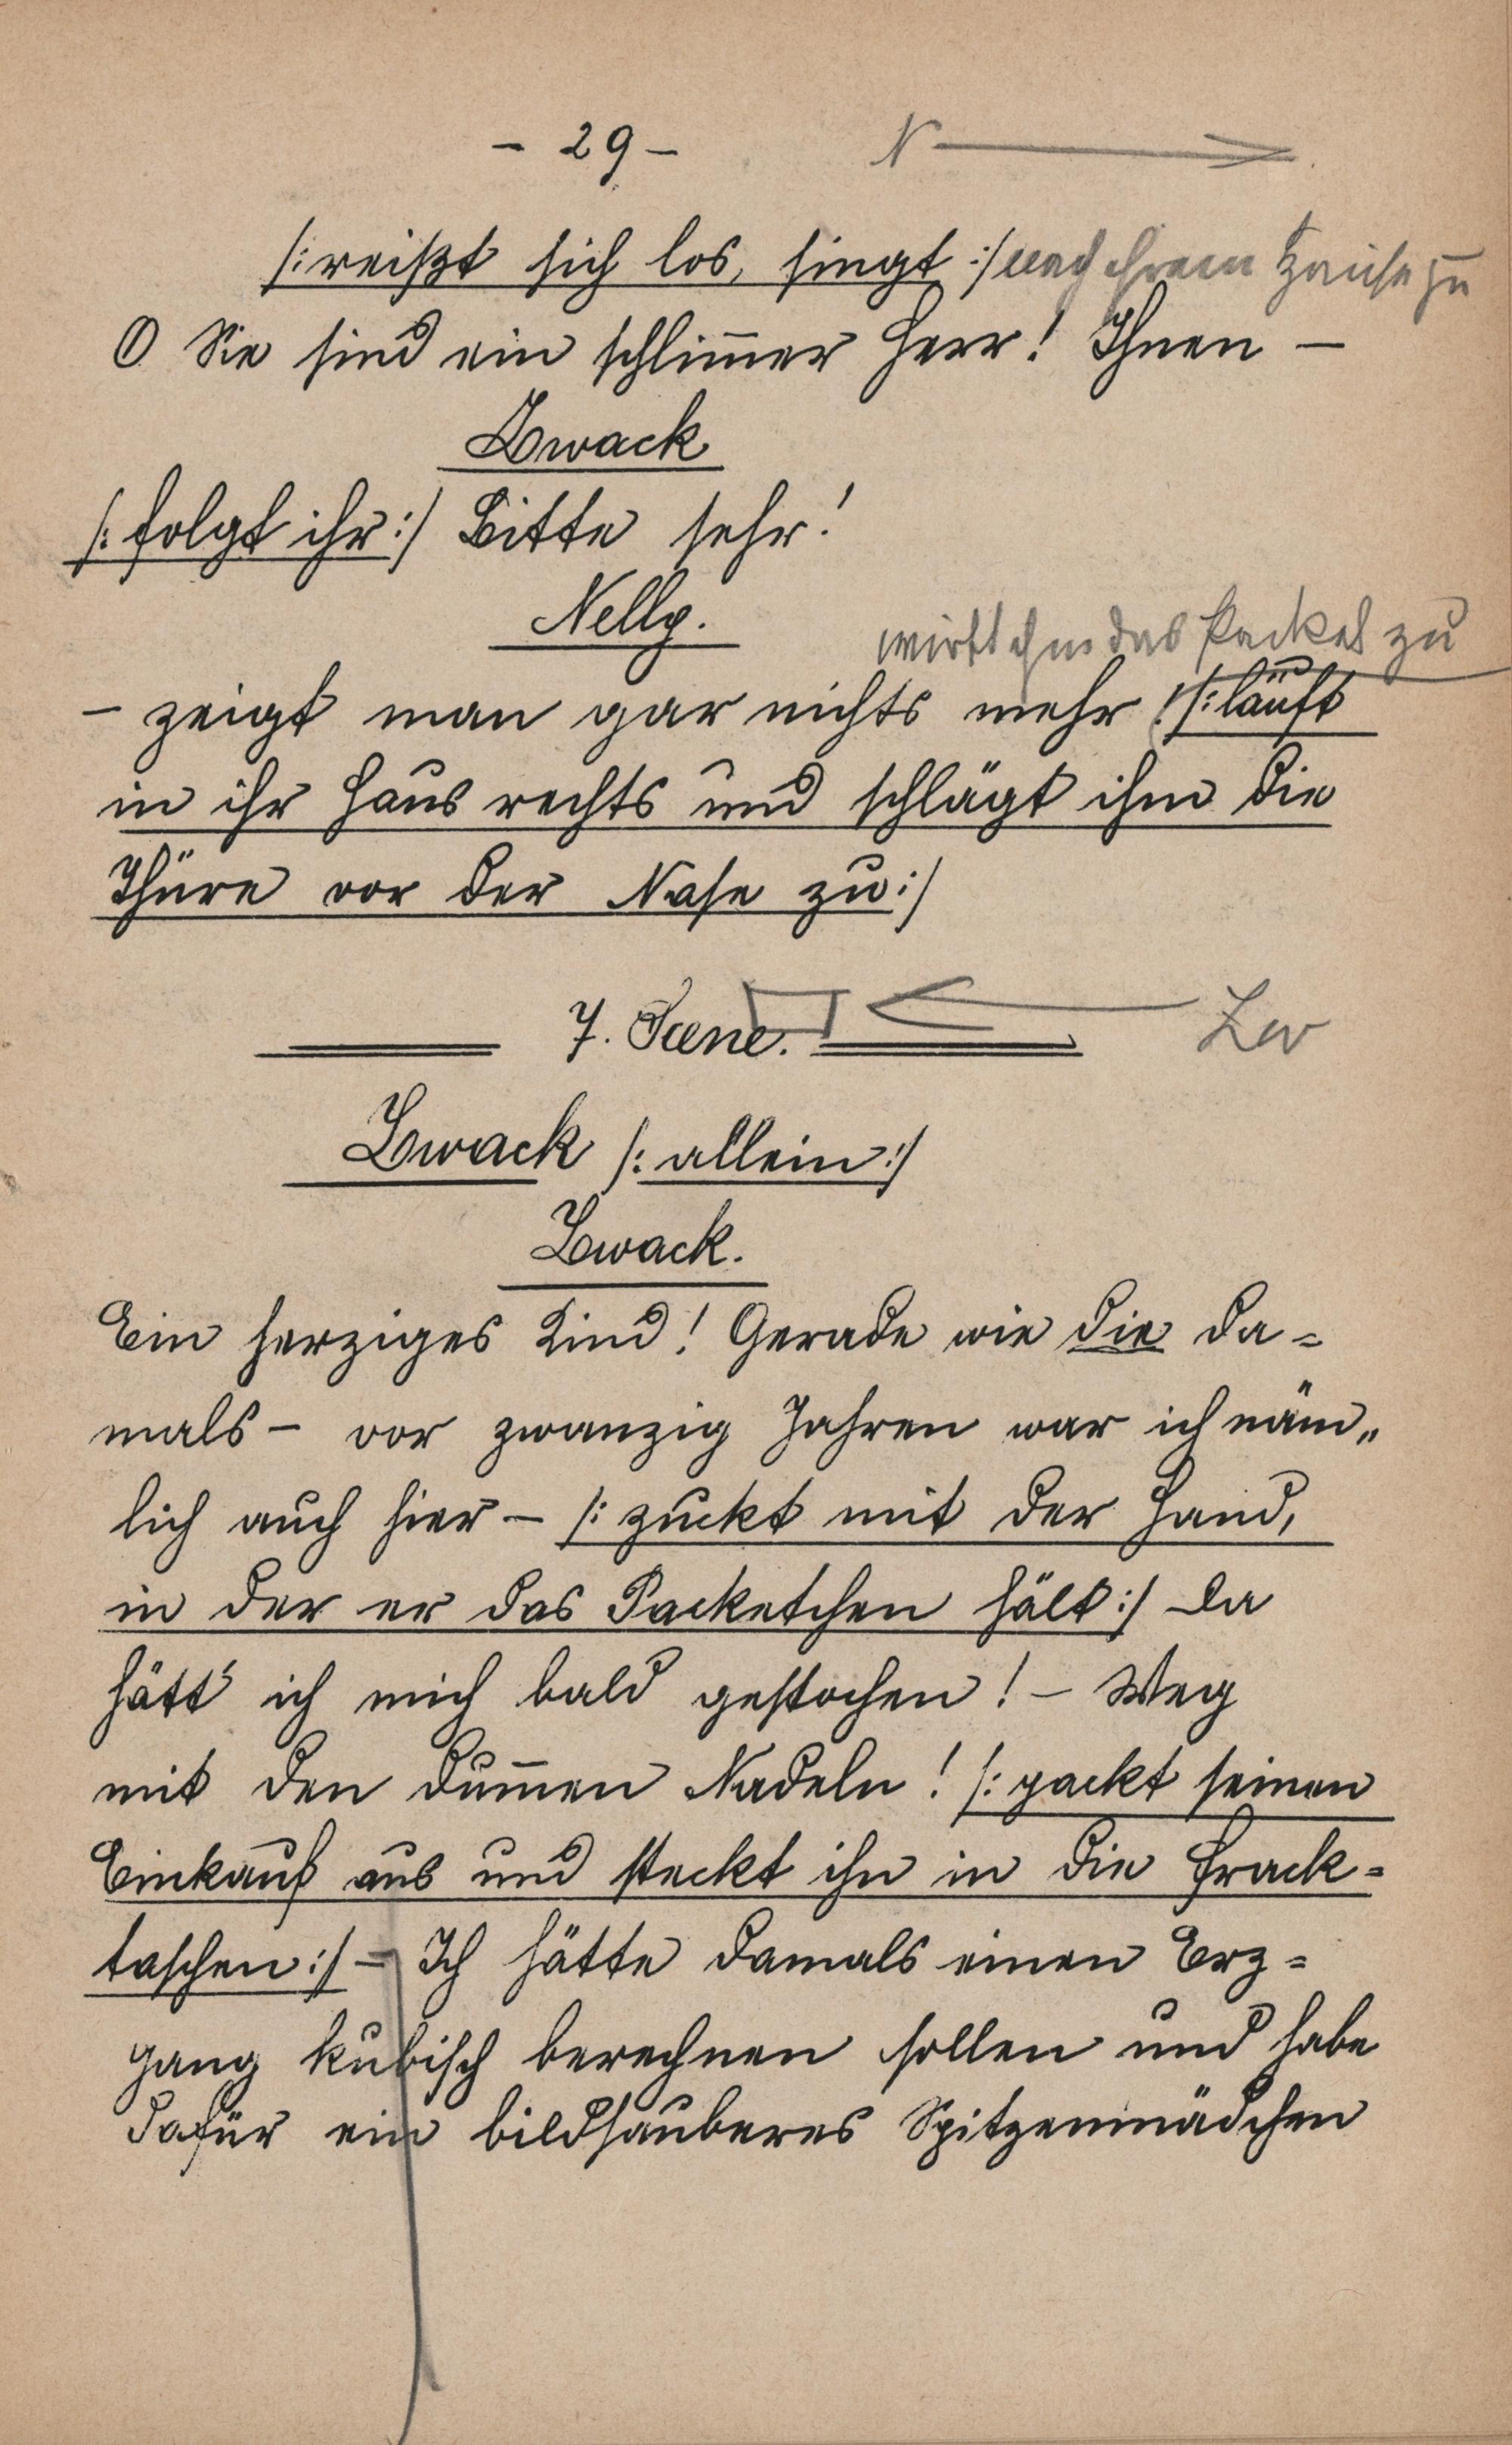 - 29 - N
/: reißt sich los, singt :/ nach ihrem Hause zu
O Sie sind ein schlim̅er Herr! Ihnen -
Zwack
/: folgt ihr :/ Bitte sehr!
Nelly.
wirft ihm das Packet zu
- zeigt man gar nichts mehr! /: läuft
in ihr Haus rechts und schlägt ihm die
Thüre vor der Nase zu :/
7. Scene. Zw
Zwack /: allein :/
Zwack.
Ein herziges Kind! Gerade wie die da=
mals - vor zwanzig Jahren war ich näm„
lich auch hier - /: zuckt mit der Hand,
in der er das Packetchen hält :/ Da
hätt' ich mich bald gestochen! - Weg
mit den dum̅en Nadeln! /: packt seinen
Einkauf aus und steckt ihn in die Frack=
taschen :/ - Ich hätte damals einen Erz=
gang kubisch berechnen sollen und habe
dafür ein bildsauberes Spitzenmädchen